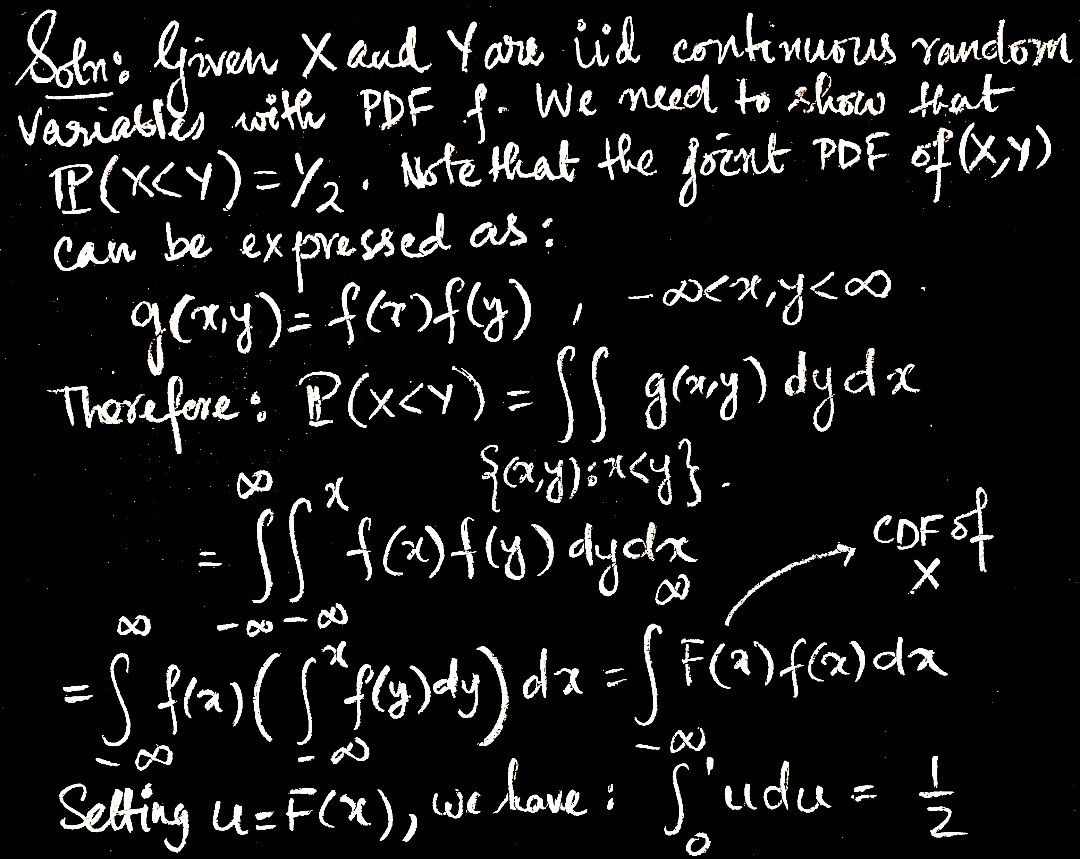 Soln: Given X and Y are iid continuous random
variables with PDF f. We need to show that
ℙ(X<Y)=1/2. Note that the joint PDF of (X,Y)
can be expressed as:
g(x,y)= f(x)f(y) , -∞<x,y<∞.
Therefore: ℙ(X<Y) = ∫∫_{{(x,y):x<y}} g(x,y) dydx
= ∫_{-∞}^{∞} ∫_{-∞}^{x} f(x)f(y) dydx
= ∫_{-∞}^{∞} f(x)( ∫_{-∞}^{x} f(y)dy) dx = ∫_{-∞}^{∞} F(x)f(x)dx → CDF of X
Setting u=F(x), we have: ∫_0^1 udu = 1/2